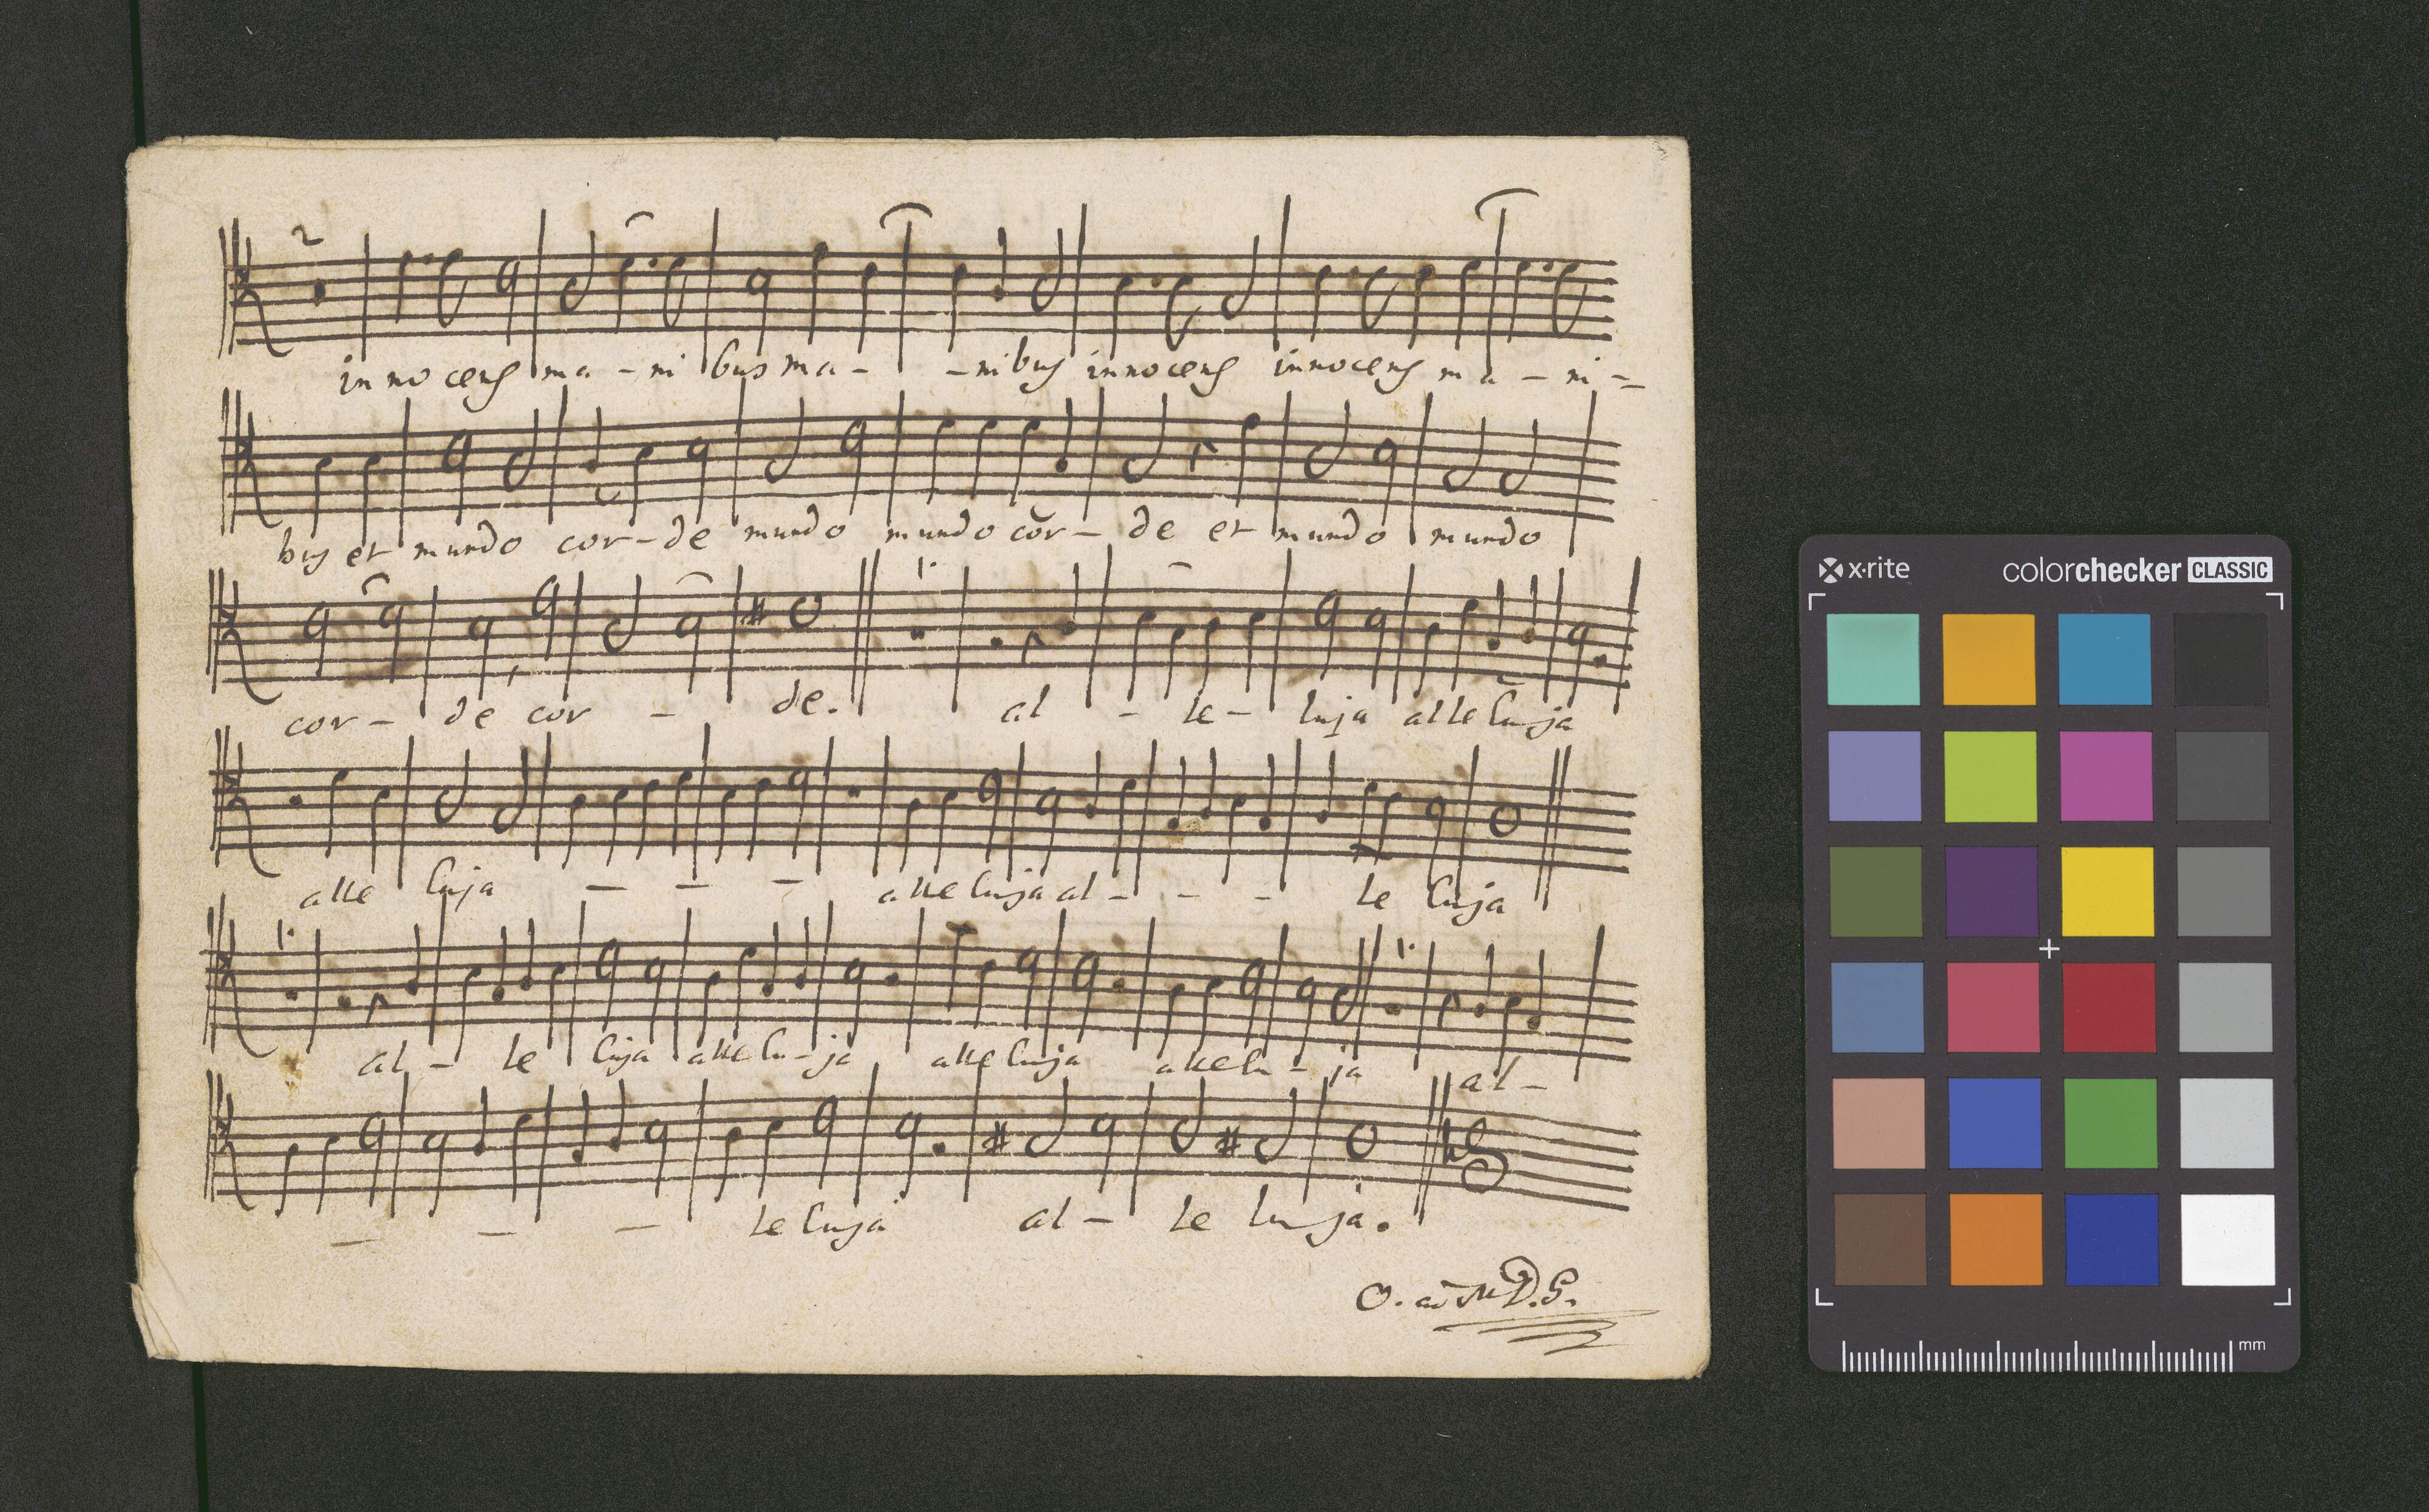 2
innocens ma - ni bus ma - - nibus innocens innocens ma - ni -
bus et mundo cor - de mundo mundo cor - de et mundo mundo
1.
cor - de cor - de. al - le - luja alleluja
alle luja - - - alleluja al - - - le luja
1. 1.
al - le luja allelu - ja alleluja allelu - ja al -
- - - le luja al - le luja.
O. a M D. G.
x·rite colorchecker CLASSIC
mm